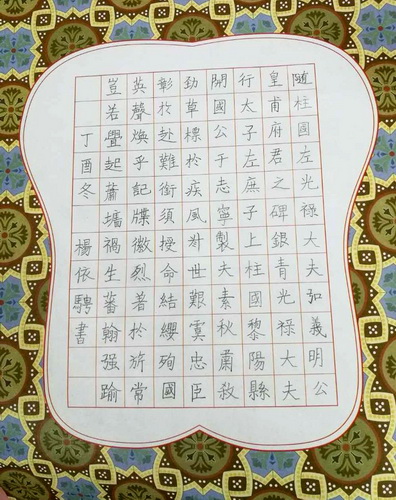 隨柱國左光祿大夫弘義明公
皇甫府君之碑銀青光祿大夫
行太子左庶子上柱國黎陽縣
開國公于志寧製夫素秋肅殺
勁草標於疾風叔世艱虞忠臣
彰於赴難銜須授命結纓殉國
英聲煥乎記牒徽烈著於旂常
豈若舋起蕭墻禍生蕃翰强踰
丁酉冬 楊依騁書